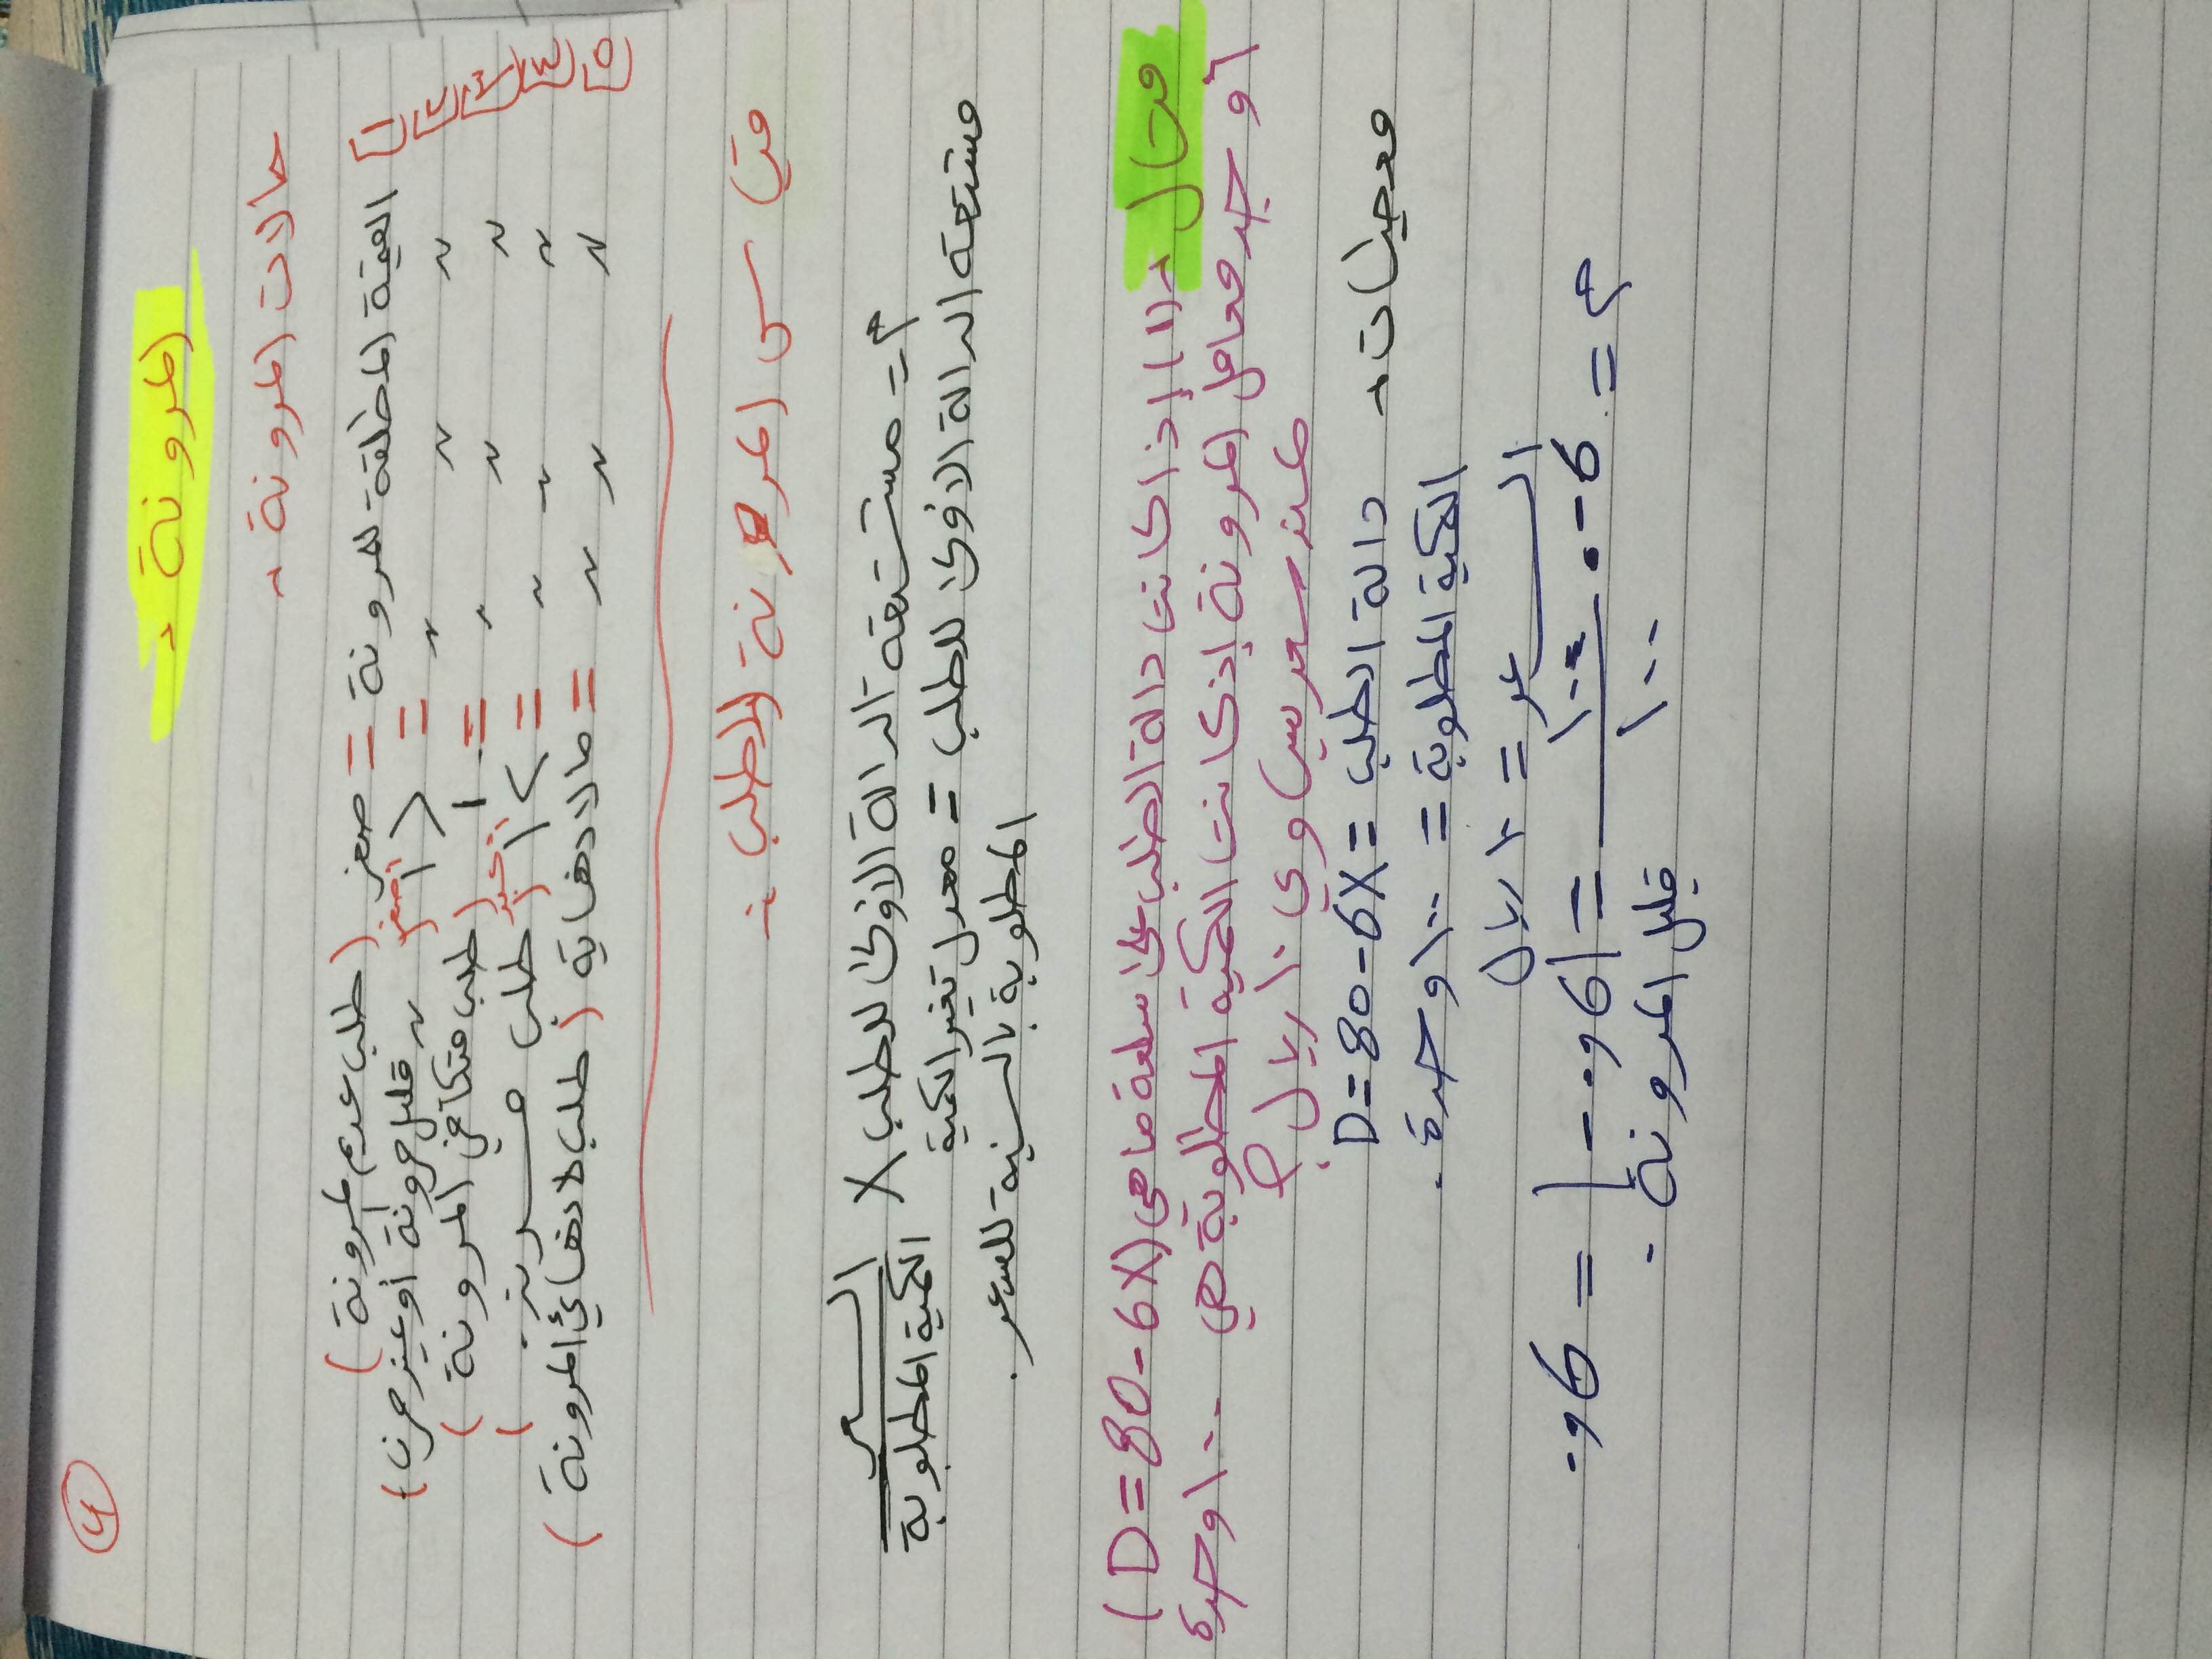 ٤
المرونة :
حالات المرونة :
١ القيمة المطلقة للمرونة = صفر (طلب عديم المرونة)
٢ " " " = > ١ أصغر " قليل مرونة أو غير مرن)
٣ " " " = ١ (طلب متكافئ المرونة)
٤ " " " = < ١ أكبر طلب مـــرن .)
٥ " " " = مالانهاية (طلب لا نهائي المرونة)
المرونة الطلب :-
م = مشتقه الدالة الاولى للطلب X السعر / الكمية المطلوبة
مشتقه الدالة الاولى للطلب = معدل تغير الكمية
المطلوبة بالنسبة للسعر .
مثال : (١) إذا كانت دالة الطلب على سلعة ما هي (D=80-6X)
أوجد معامل المرونة إذ كانت الكمية المطلوبة هي ١٠٠ وحدة
عند سعر يساوي ١٠ ريال ؟
معطيات : دالة الطلب = D=80-6X
الكمية المطلوبة = ١٠٠ وحدة .
السعر = ١٠ ريال
م = 6- . ١٠ / ١٠٠ = |-٠,6| = ٠,6
قليل المرونة .